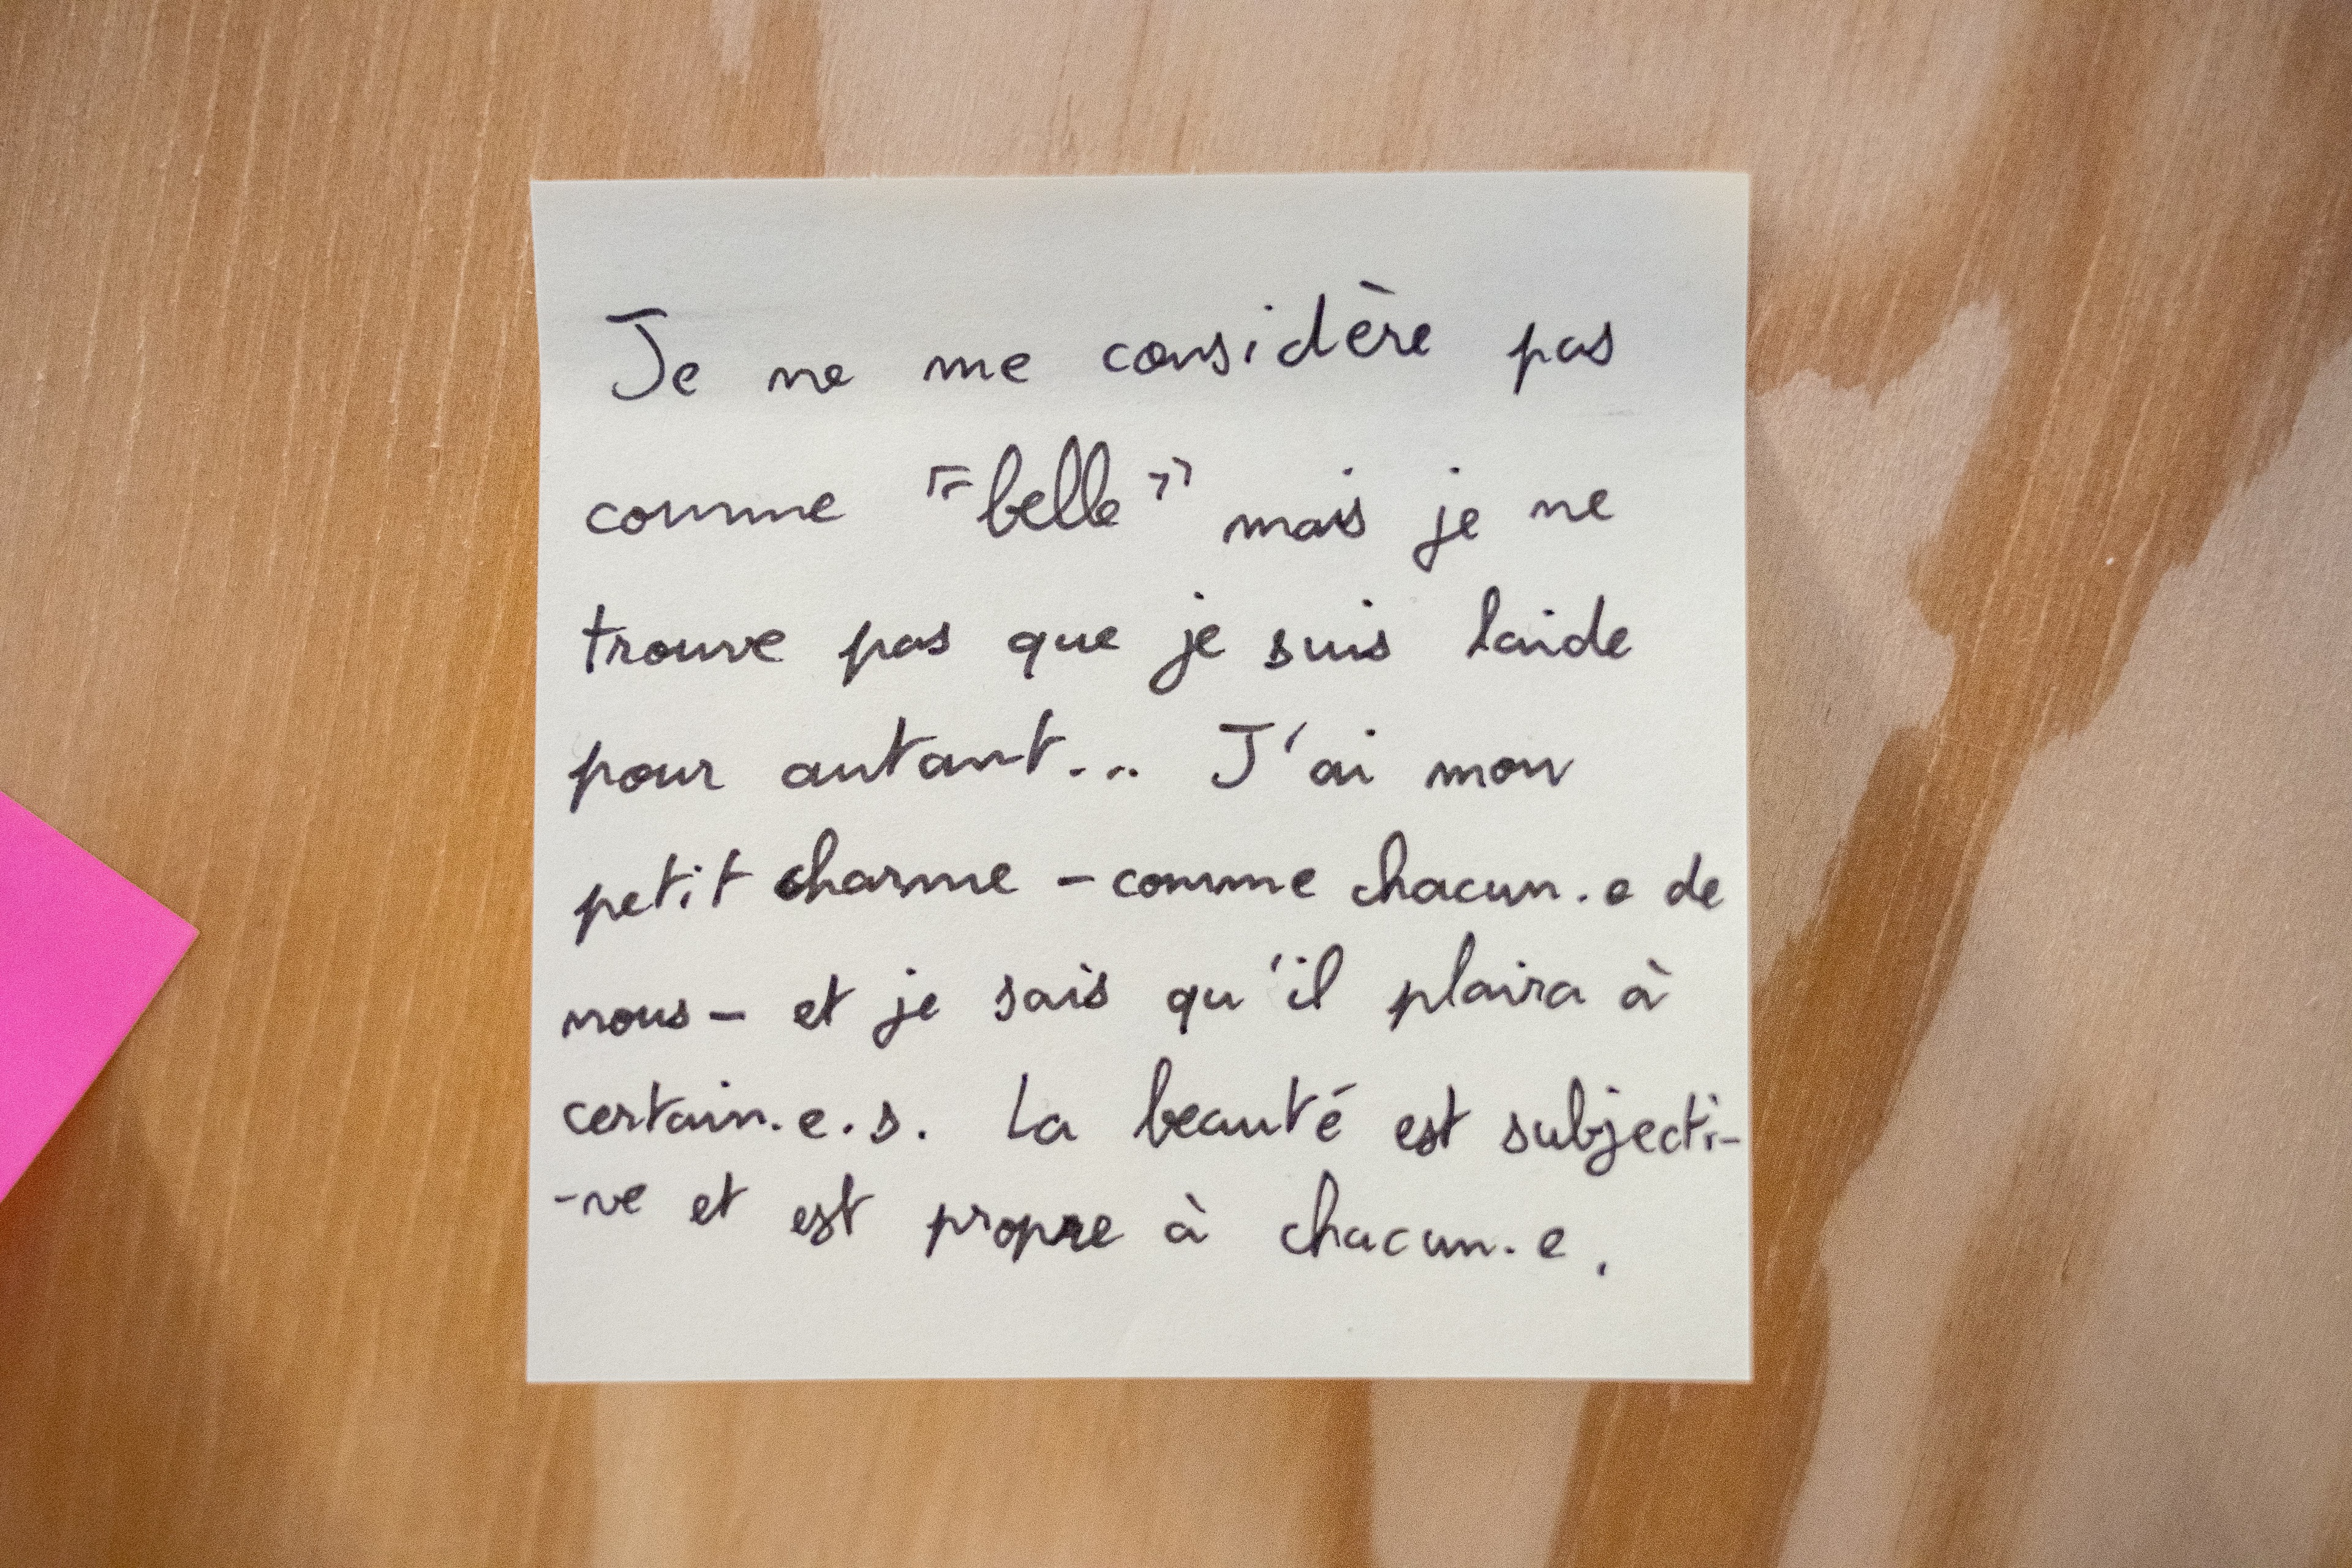 Je ne me considère pas
comme "belle" mais je ne
trouve pas que je suis laide
pour autant... J'ai mon
petit charme - comme chacun.e de
nous - et je sais qu'il plaira à
certain.e.s. La beauté est subjecti-
-ve et est propre à chacun.e.